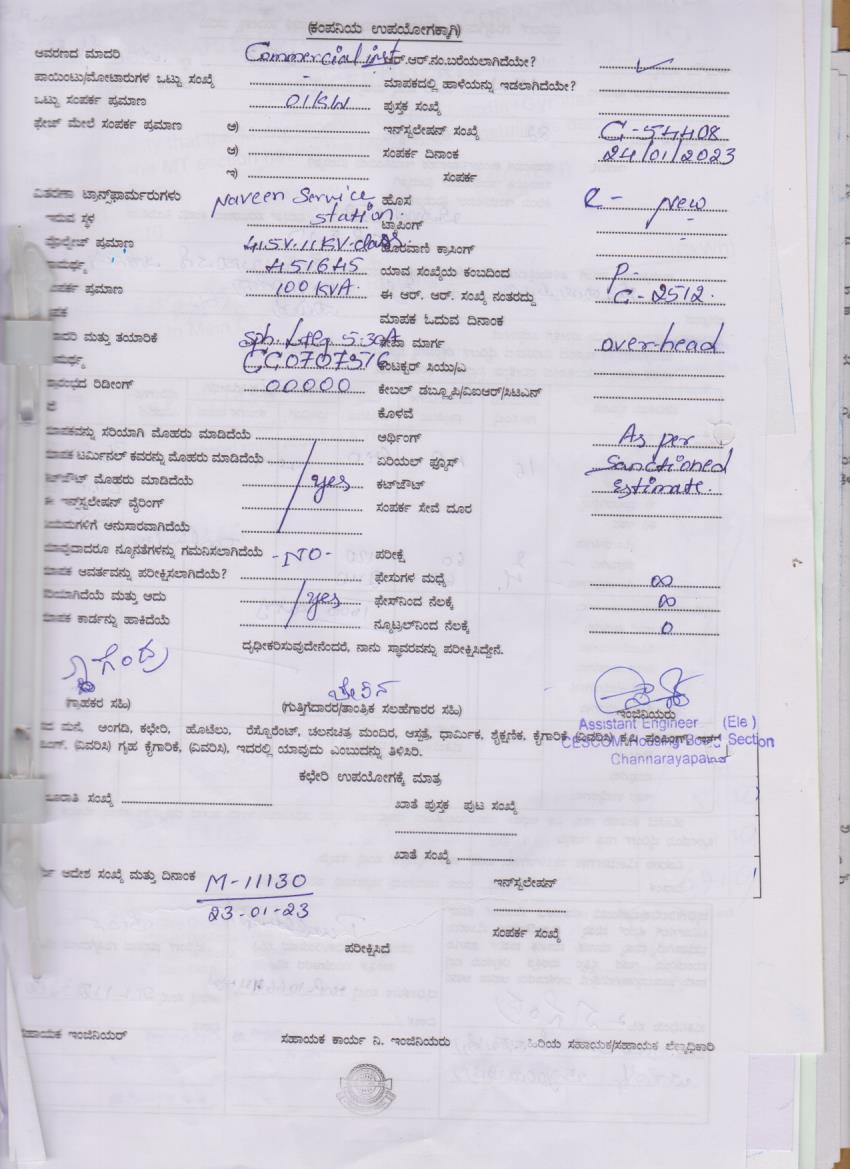 (ಕಂಪನಿಯ ಉಪಯೋಗಕ್ಕಾಗಿ)
ಆವರಣದ ಮಾದರಿ Commercial inst ಆರ್.ಆರ್.ನಂ.ಬರೆಯಲಾಗಿದೆಯೇ? ✓
ಪಾಯಿಂಟು/ಮೋಟಾರುಗಳ ಒಟ್ಟು ಸಂಖ್ಯೆ - ಮಾಪಕದಲ್ಲಿ ಹಾಳೆಯನ್ನು ಇಡಲಾಗಿದೆಯೇ?
ಒಟ್ಟು ಸಂಪರ್ಕ ಪ್ರಮಾಣ 01KW ಪುಸ್ತಕ ಸಂಖ್ಯೆ
ಫೇಜ್ ಮೇಲೆ ಸಂಪರ್ಕ ಪ್ರಮಾಣ ಅ) ಇನ್‌ಸ್ಟಲೇಷನ್ ಸಂಖ್ಯೆ C-54408
ಆ) ಸಂಪರ್ಕ ದಿನಾಂಕ 24/01/2023
ಇ) ಸಂಪರ್ಕ
ವಿತರಣಾ ಟ್ರಾನ್ಸ್‌ಫಾರ್ಮರುಗಳು Naveen Service ಹೊಸ R- New
ಇರುವ ಸ್ಥಳ station. ಟ್ಯಾಪಿಂಗ್ -
ವೋಲ್ಟೇಜ್ ಪ್ರಮಾಣ 415V. 11KV-class. ದೂರವಾಣಿ ಕ್ರಾಸಿಂಗ್ -
ಾಮರ್ಥ್ಯ 451645 ಯಾವ ಸಂಖ್ಯೆಯ ಕಂಬದಿಂದ P-
ಂಪರ್ಕ ಪ್ರಮಾಣ 100KVA. ಈ ಆರ್. ಆರ್. ಸಂಖ್ಯೆ ನಂತರದ್ದು C-2512.
ಪಕ ಮಾಪಕ ಓದುವ ದಿನಾಂಕ
ಾದರಿ ಮತ್ತು ತಯಾರಿಕೆ 5-30A ಸೇವಾ ಮಾರ್ಗ over-head
ಾಮರ್ಥ್ಯ CC0707516 ಕಂಟಕ್ಟರ್ ಸಿಯು/ಎ
ಾರಂಭದ ರಿಡೀಂಗ್ 00000 ಕೇಬಲ್ ಡಬ್ಲ್ಯೂಪಿ/ವಿಐಆರ್/ಸಿಟಿಎನ್
ಕೊಳವೆ
ಮಾಪಕವನ್ನು ಸರಿಯಾಗಿ ಮೊಹರು ಮಾಡಿದೆಯೆ ಅರ್ಥಿಂಗ್ As per
ಮಾಪಕ ಟರ್ಮಿನಲ್ ಕವರನ್ನು ಮೊಹರು ಮಾಡಿದೆಯೆ ಏರಿಯಲ್ ಫ್ಯೂಸ್ Sanctioned
ಕಟ್‌ಔಟ್ ಮೊಹರು ಮಾಡಿದೆಯೆ yes ಕಟ್‌ಔಟ್ Estimate.
ಈ ಇನ್ಸ್‌ಟಲೇಷನ್ ವೈರಿಂಗ್ ಸಂಪರ್ಕ ಸೇವೆ ದೂರ
ನಿಯಮಗಳಿಗೆ ಅನುಸಾರವಾಗಿದೆಯೆ
ಯಾವುದಾದರೂ ನ್ಯೂನತೆಗಳನ್ನು ಗಮನಿಸಲಾಗಿದೆಯೆ -NO- ಪರೀಕ್ಷೆ
ಮಾಪಕ ಆವರ್ತವನ್ನು ಪರೀಕ್ಷಿಸಲಾಗಿದೆಯೆ? ಫೇಸುಗಳ ಮಧ್ಯೆ ∞
ಸರಿಯಾಗಿದೆಯೆ ಮತ್ತು ಅದು yes ಫೇಸ್‌ನಿಂದ ನೆಲಕ್ಕೆ ∞
ಮಾಪಕ ಕಾರ್ಡನ್ನು ಹಾಕಿದೆಯೆ ನ್ಯೂಟ್ರಲ್‌ನಿಂದ ನೆಲಕ್ಕೆ 0
ದೃಢೀಕರಿಸುವುದೇನೆಂದರೆ, ನಾನು ಸ್ಥಾವರವನ್ನು ಪರೀಕ್ಷಿಸಿದ್ದೇನೆ.
(ಗ್ರಾಹಕರ ಸಹಿ) (ಗುತ್ತಿಗೆದಾರರ/ತಾಂತ್ರಿಕ ಸಲಹೆಗಾರರ ಸಹಿ) ಇಂಜಿನಿಯರು
Assistant Engineer (Ele)
ಮನೆ, ಅಂಗಡಿ, ಕಛೇರಿ, ಹೊಟೆಲು, ರೆಸ್ಟೋರೆಂಟ್, ಚಲನಚಿತ್ರ ಮಂದಿರ, ಆಸ್ಪತ್ರೆ, ಧಾರ್ಮಿಕ, ಶೈಕ್ಷಣಿಕ, ಕೈಗಾರಿಕೆ (ವಿವರಿಸಿ) ಕೃಷಿ ಪಂಪಿಂಗ್,
CESCOM Housing Board Section
(ವಿವರಿಸಿ) ಗೃಹ ಕೈಗಾರಿಕೆ, (ವಿವರಿಸಿ), ಇದರಲ್ಲಿ ಯಾವುದು ಎಂಬುದನ್ನು ತಿಳಿಸಿರಿ.
Channarayapatna
ಕಛೇರಿ ಉಪಯೋಗಕ್ಕೆ ಮಾತ್ರ
ಸಂಖ್ಯೆ ಖಾತೆ ಪುಸ್ತಕ ಪುಟ ಸಂಖ್ಯೆ
ಖಾತೆ ಸಂಖ್ಯೆ
ಆದೇಶ ಸಂಖ್ಯೆ ಮತ್ತು ದಿನಾಂಕ M-11130 ಇನ್‌ಸ್ಟಲೇಷನ್
23-01-23
ಸಂಪರ್ಕ ಸಂಖ್ಯೆ
ಪರೀಕ್ಷಿಸಿದೆ
ಸಹಾಯಕ ಇಂಜಿನಿಯರ್ ಸಹಾಯಕ ಕಾರ್ಯ ನಿ. ಇಂಜಿನಿಯರು ಹಿರಿಯ ಸಹಾಯಕ/ಸಹಾಯಕ ಲೆಕ್ಕಾಧಿಕಾರಿ